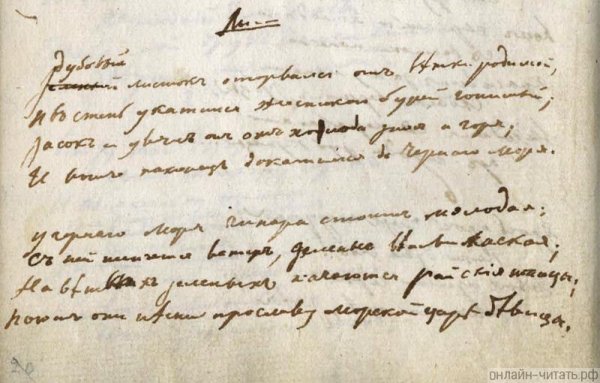 Ли—
Дубовый
листокъ оторвался отъ вѣтки родимой,
И въ степь укатился жестокою бурей гонимый;
Засохъ и увялъ онъ отъ холода зноя и горя;
И вотъ наконецъ докатился до Чернаго моря.
У Чернаго моря чинара стоитъ молодая;
Съ ней шепчется вѣтеръ, зеленыя вѣтви лаская;
На вѣтвяхъ зеленыхъ качаются райскія птицы;
Поютъ они пѣсни про славу морской царь-дѣвицы.
20
онлайн-читать.рф